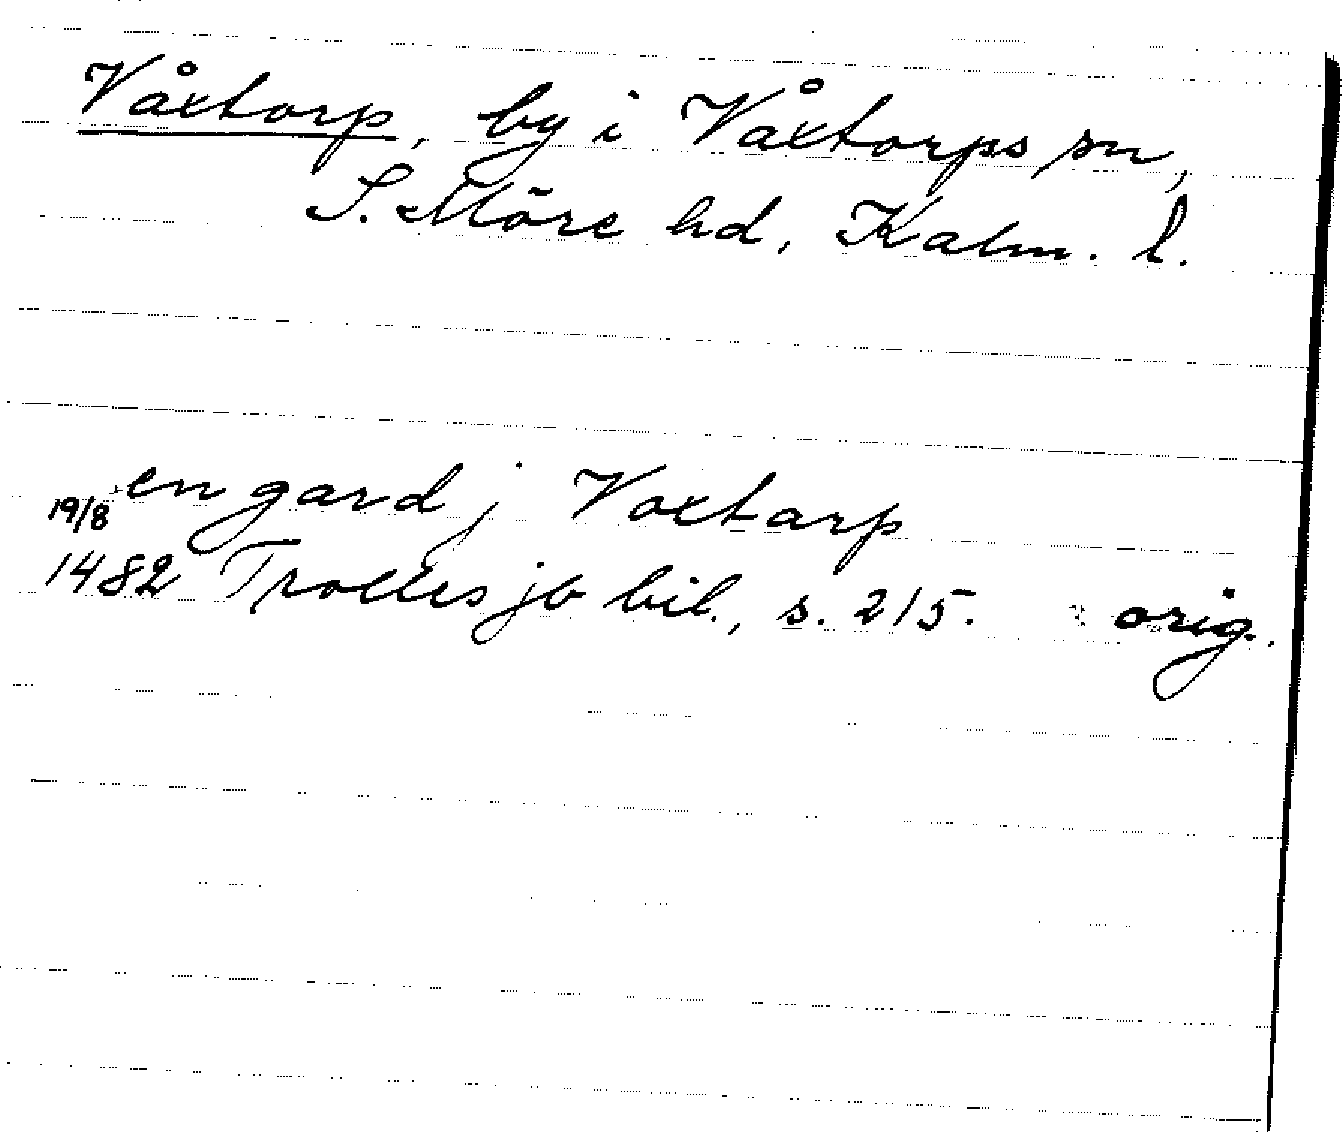 Våxtorp, by i Våxtorps sn,
S. Möre hd, Kalm. l.
en gard j Voxtarp
19/8
1482 Trolles jb bil., s. 215. orig.